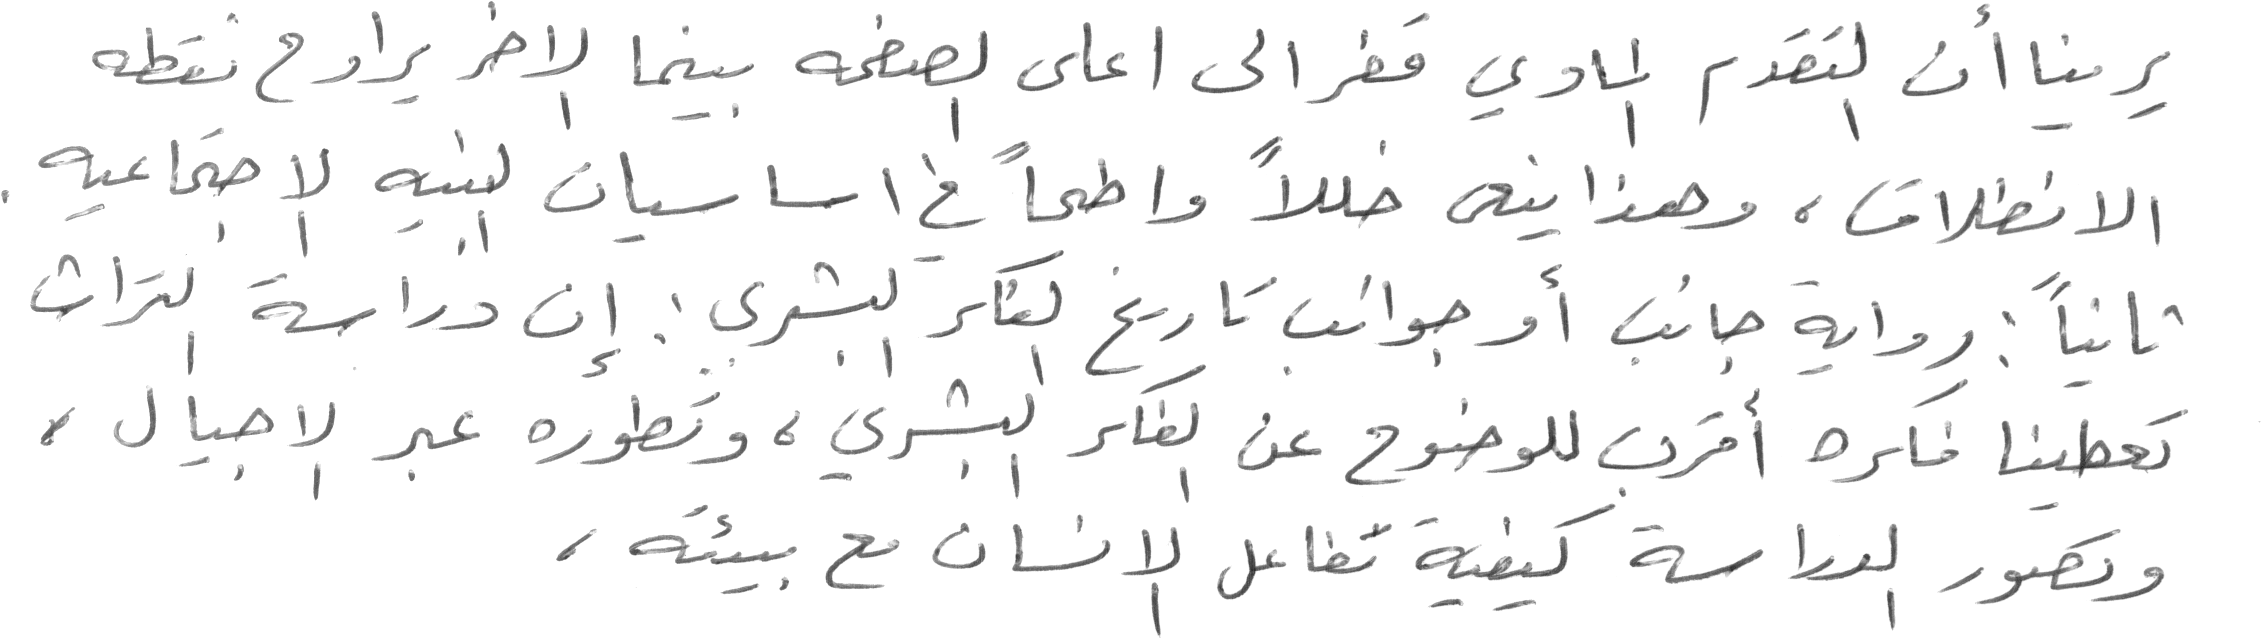 يرينا أن التقدم المادي قفز الى اعلى الصفحه بينما الاخر يراوح نقطه
الانطلاق ، وهذا يعني خللاً واضحاً في اساسيات البنيه الاجتماعيه .
ثانياً : رواية جانب أو جوانب تاريخ الفكر البشري : إن دراسة التراث
تعطينا فكره أقرب للوضوح عن الفكر البشري ، وتطوره عبر الاجيال ،
وتصور الدراسة كيفية تفاعل الانسان مع بيئته ،